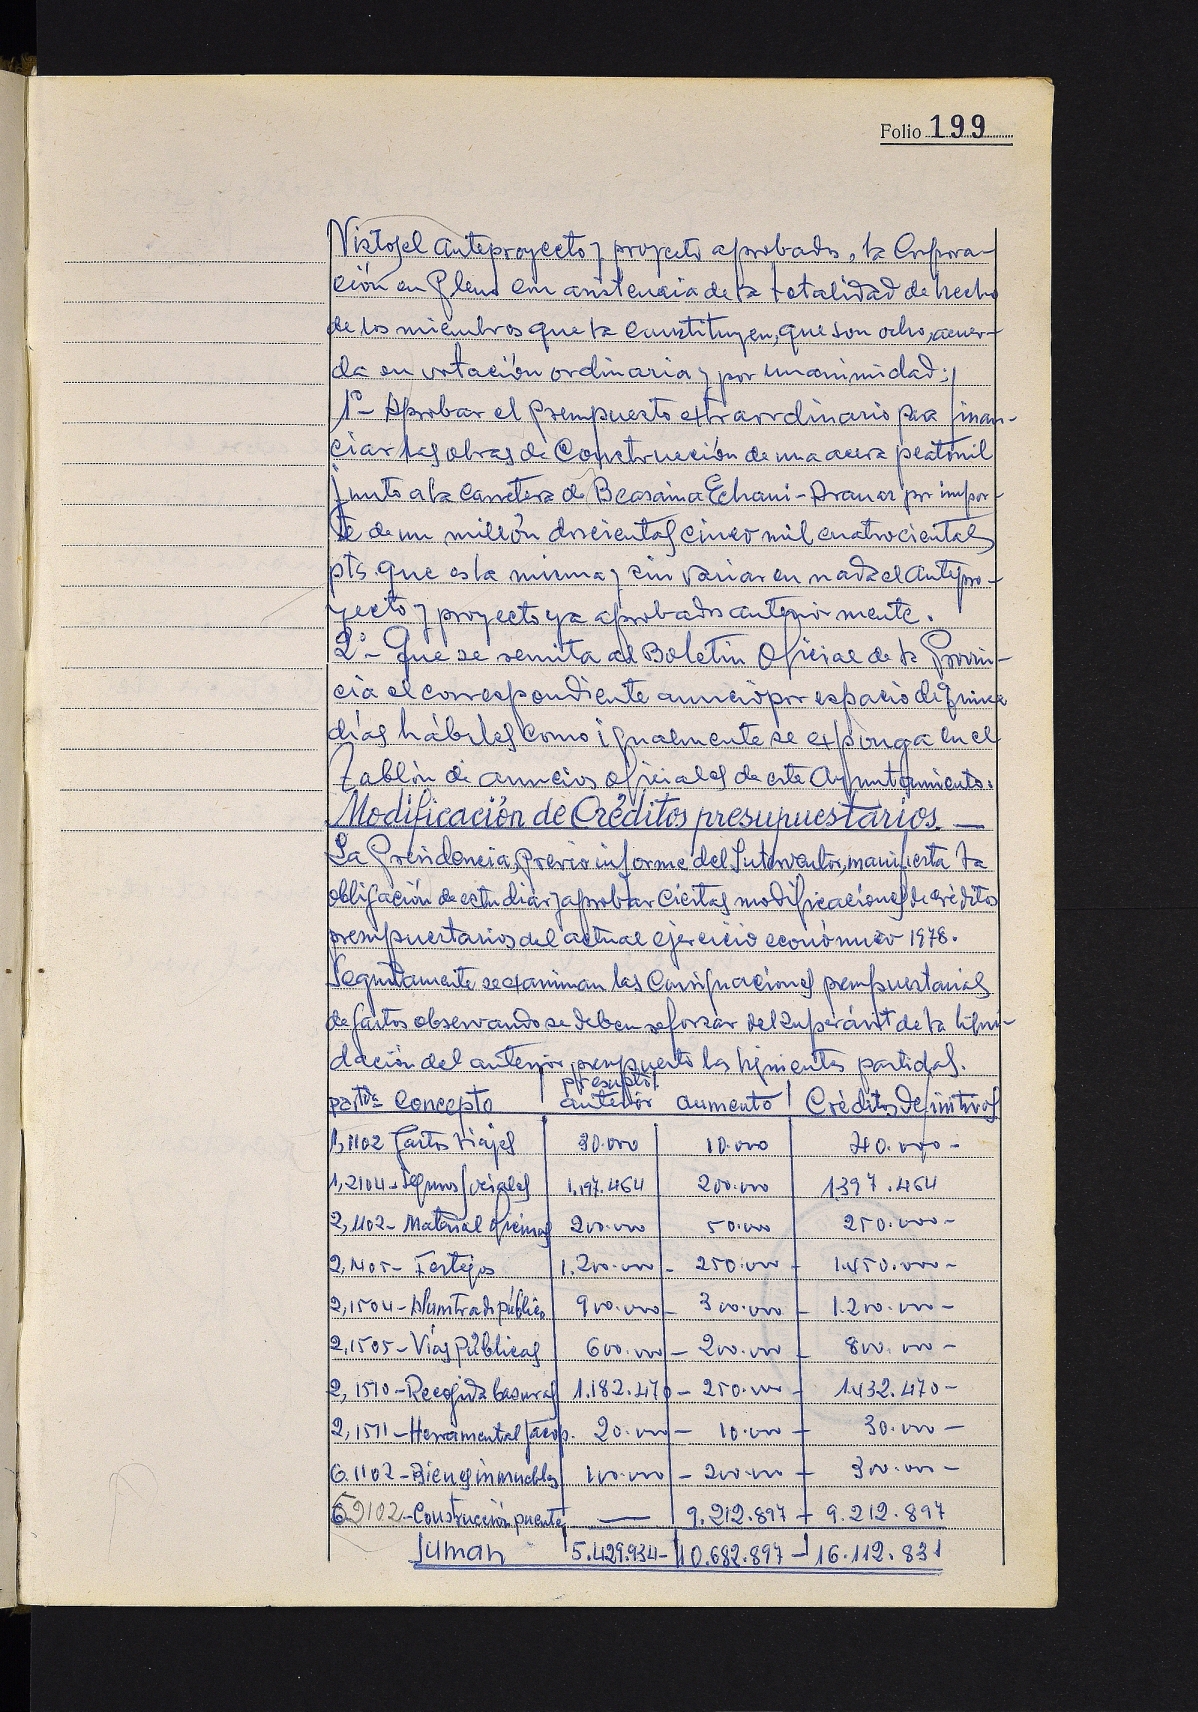 Folio 199
Vistos el anteproyecto y proyecto aprobados, la Corpora-
ción en Pleno con asistencia de la totalidad de hecho
de los miembros que la constituyen, que son ocho, acuer-
da en votación ordinaria y por unanimidad:
1º- Aprobar el presupuesto extraordinario para finan-
ciar las obras de Construcción de una acera peatonil
junto a la Carretera de Beasaina Echani-Aranar por impor-
te de un millón doscientas cinco mil cuatrocientas
pts. que es la misma y sin variar en nada el antepro-
yecto y proyecto ya aprobados anteriormente.
2º- Que se remita al Boletín Oficial de la Provin-
cia el correspondiente anuncio por espacio de quince
días hábiles como igualmente se exponga en el
Tablón de anuncios oficiales de este Ayuntamiento.
Modificación de Créditos presupuestarios. —
La Presidencia, previo informe del Interventor, manifiesta la
obligación de estudiar y aprobar ciertas modificaciones de créditos
presupuestarios del actual ejercicio económico 1978.
Seguidamente se examinan las Consignaciones presupuestarias
de gastos observando se deben reforzar del superávit de la liqui-
dación del anterior presupuesto las siguientes partidas.
partdas Concepto presupto/. anterior aumento Créditos definitivos
1,1102 Gastos viajes 30.000 10.000 40.000 -
1,2104 - Seguros sociales 1.197.464 200.000 1397.464
2,1102 - Material oficinas 200.000 50.000 250.000 -
2,1405 - Festejos 1.200.000 - 250.000 - 1.450.000 -
2,1504 - Alumbrado público 900.000 - 300.000 - 1.200.000 -
2,1505 - Vías Públicas 600.000 - 200.000 - 800.000 -
2,1510 - Recogida basuras 1.182.470 - 250.000 - 1.432.470 -
2,1511 - Herramental 20.000 - 10.000 - 30.000 -
6.1102 - Bienes inmuebles 100.000 - 200.000 - 300.000 -
6 2102 - Construcción puente — 9.212.897 - 9.212.897
Suman 5.429.934 - 10.682.897 - 16.112.831